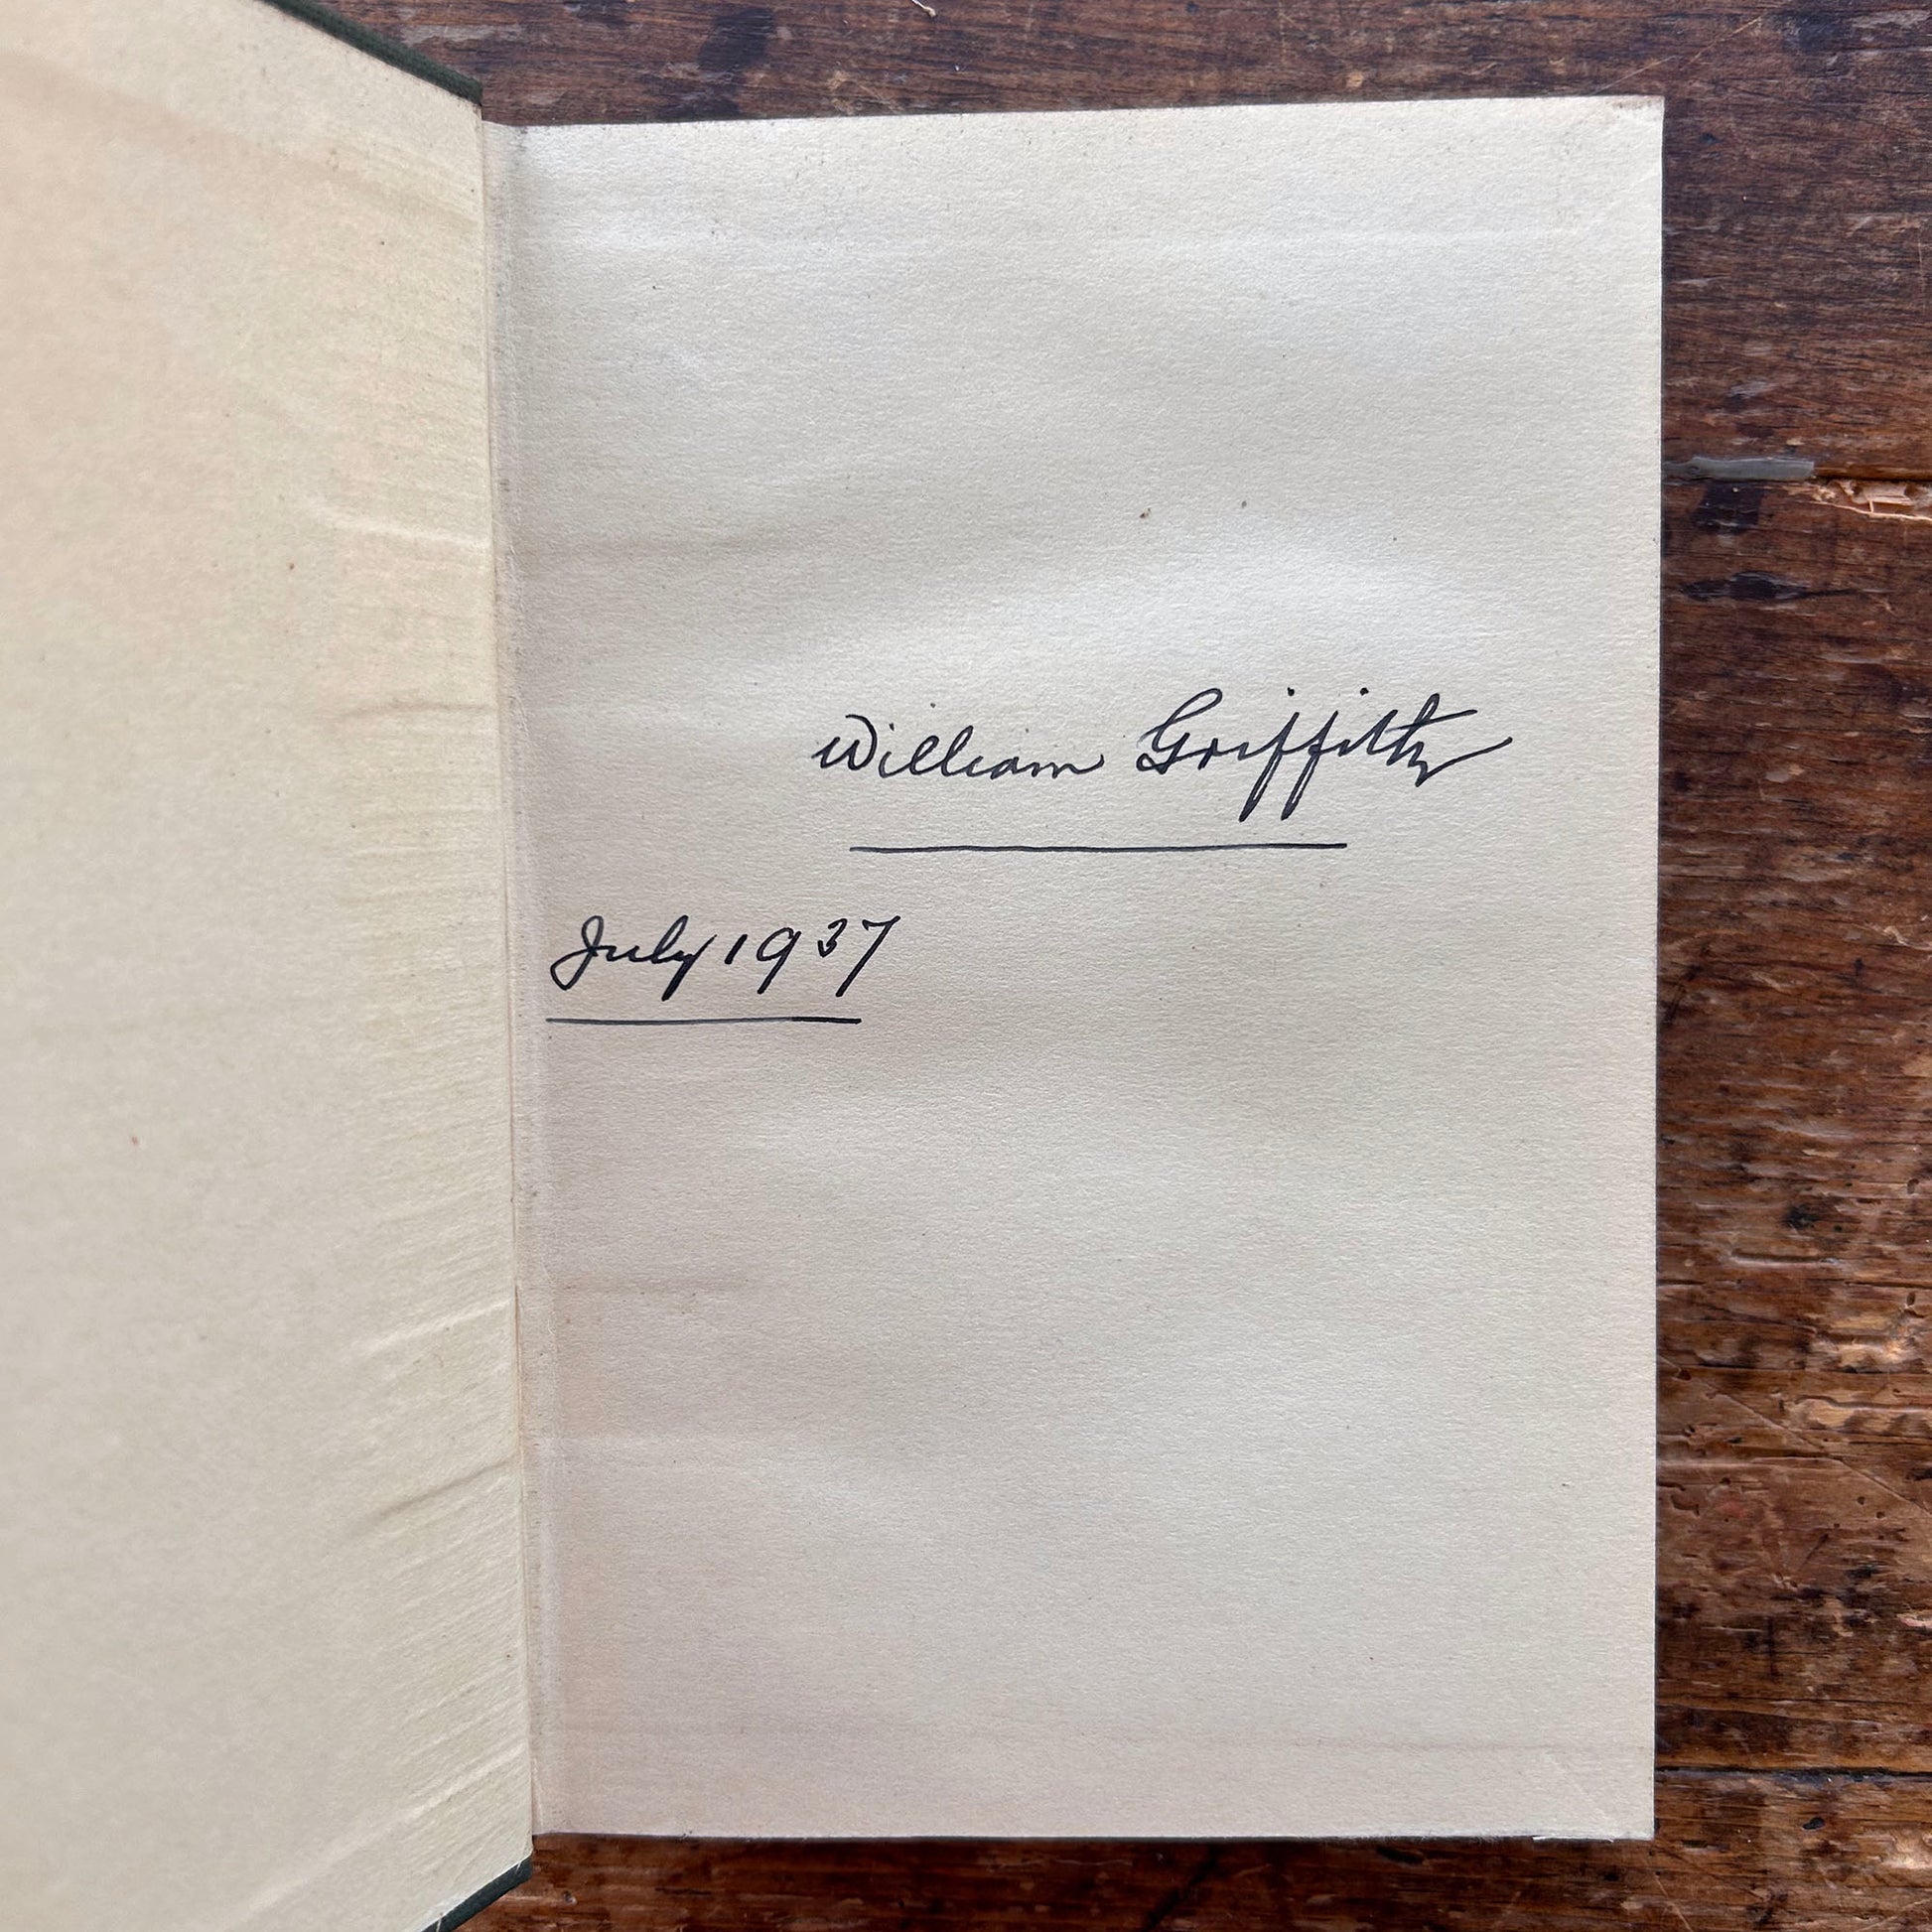 William Griffith
July 1937